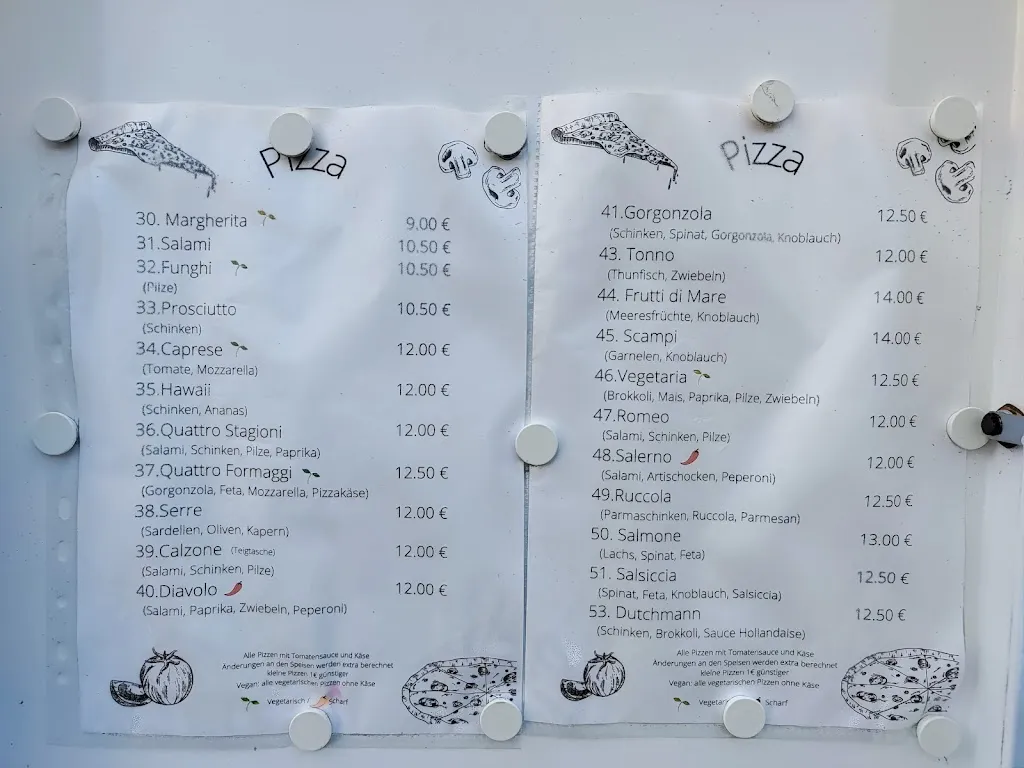 Pizza
30. Margherita 9.00 €
31.Salami 10.50 €
32.Funghi 10.50 €
(Pilze)
33.Prosciutto 10.50 €
(Schinken)
34.Caprese 12.00 €
(Tomate, Mozzarella)
35.Hawaii 12.00 €
(Schinken, Ananas)
36.Quattro Stagioni 12.00 €
(Salami, Schinken, Pilze, Paprika)
37.Quattro Formaggi 12.50 €
(Gorgonzola, Feta, Mozzarella, Pizzakäse)
38.Serre 12.00 €
(Sardellen, Oliven, Kapern)
39.Calzone (Teigtasche) 12.00 €
(Salami, Schinken, Pilze)
40.Diavolo 12.00 €
(Salami, Paprika, Zwiebeln, Peperoni)
Alle Pizzen mit Tomatensauce und Käse
Änderungen an den Speisen werden extra berechnet
kleine Pizzen 1€ günstiger
Vegan: alle vegetarischen Pizzen ohne Käse
Vegetarisch Scharf
Pizza
41.Gorgonzola 12.50 €
(Schinken, Spinat, Gorgonzola, Knoblauch)
43. Tonno 12.00 €
(Thunfisch, Zwiebeln)
44. Frutti di Mare 14.00 €
(Meeresfrüchte, Knoblauch)
45. Scampi 14.00 €
(Garnelen, Knoblauch)
46.Vegetaria 12.50 €
(Brokkoli, Mais, Paprika, Pilze, Zwiebeln)
47.Romeo 12.00 €
(Salami, Schinken, Pilze)
48.Salerno 12.00 €
(Salami, Artischocken, Peperoni)
49.Ruccola 12.50 €
(Parmaschinken, Ruccola, Parmesan)
50. Salmone 13.00 €
(Lachs, Spinat, Feta)
51. Salsiccia 12.50 €
(Spinat, Feta, Knoblauch, Salsiccia)
53. Dutchmann 12.50 €
(Schinken, Brokkoli, Sauce Hollandaise)
Alle Pizzen mit Tomatensauce und Käse
Änderungen an den Speisen werden extra berechnet
kleine Pizzen 1€ günstiger
Vegan: alle vegetarischen Pizzen ohne Käse
Scharf